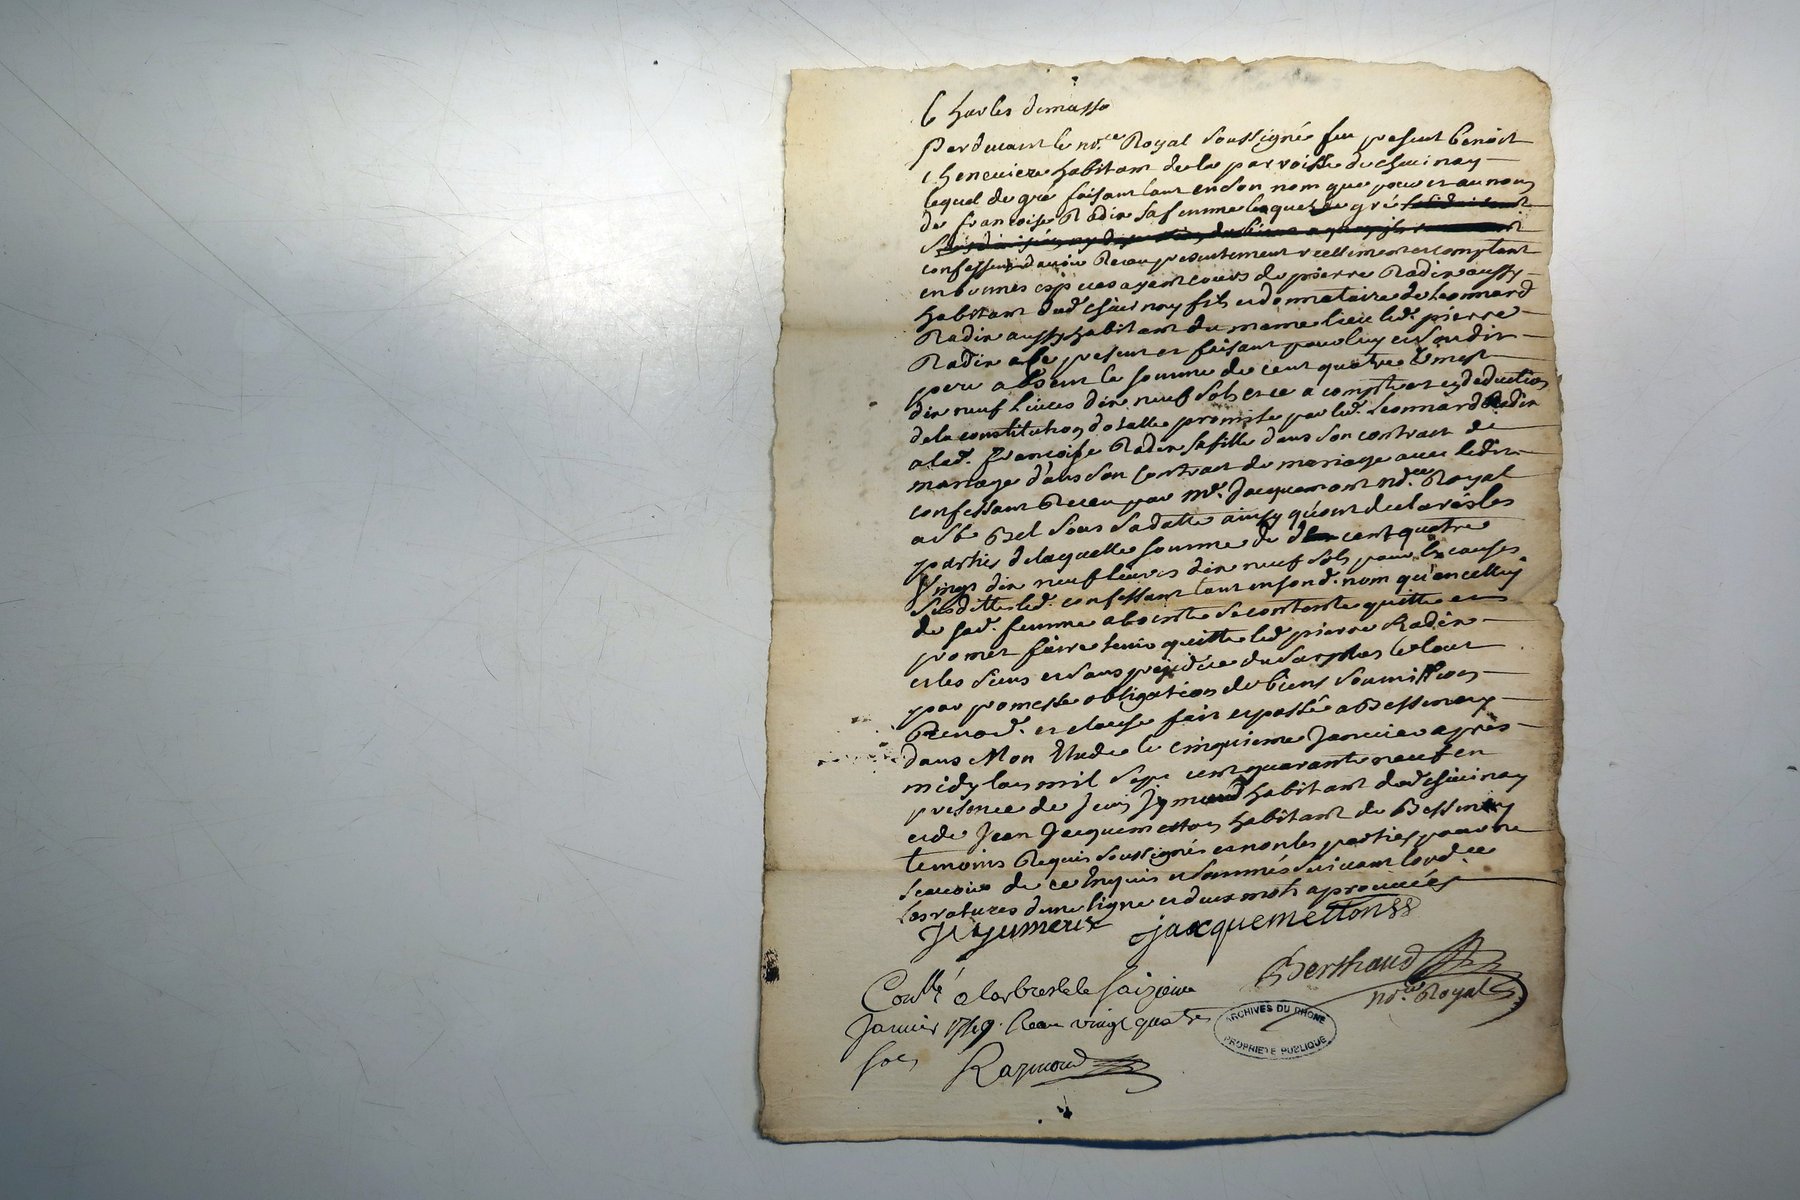 Charles dimasso
Pardevant le no.re Royal soussigné fut present Benoist
Cheneviere habitant de la parroisse de chevinay
lequel de gré faisant tant en son nom que pour et au nom
de francoise Radix sa femme lequel de gré
confesse davoir Receu presentement reellement et comptant
en bonnes especes ayent cours de pierre Radix aussy
habitant dud. chevinay fils et donnataire de Leonnard
Radix aussy habitant du meme lieu led. pierre
Radix a ce present et faisant pour luy et sondit
pere absent la somme de cent quatre vingt
dix neuf livres dix neuf sols et ce a compte et en deduction
de la constitution dotalle promise par led. Leonnard Radix
a lad. francoise Radix sa fille dans son contract de
mariage dans son contract de mariage avec ledit
confessant Receu par me. Jacquemont no.re Royal
a st Bel sous sa datte ainsy qu'ont declaré les
parties de laquelle somme de cent quatre
vingt dix neuf livres dix neuf sols pour les causes
susdittes led. confessant tant en sond. nom qu'en celluy
de sad. femme absente se contente quitte et
promet faire tenir quitte led. pierre Radix
et les siens et sans prejudice du surplus le tout
par promesse obligation de biens soumissions
Renond. et clause fait et passé a Bessenay
dans Mon Etude le cinquieme Janvier apres
midy lan mil sept cent quarante neuf en
presence de habitant dud. chevinay
et de Jean Jacquemetton habitant de Bessenay
temoins Requis soussignés et non les parties pour ne
scavoir de ce Enquis et sommés suivant lord.ce
les ratures dune ligne et deux mots aprouvées
jacquemetton
Berthaud
no.re Royal
Coll.é a larbresle le saizieme
Janvier 1749. Receu vingt quatre
sols
Raymond
ARCHIVES DU RHONE
PROPRIETE PUBLIQUE